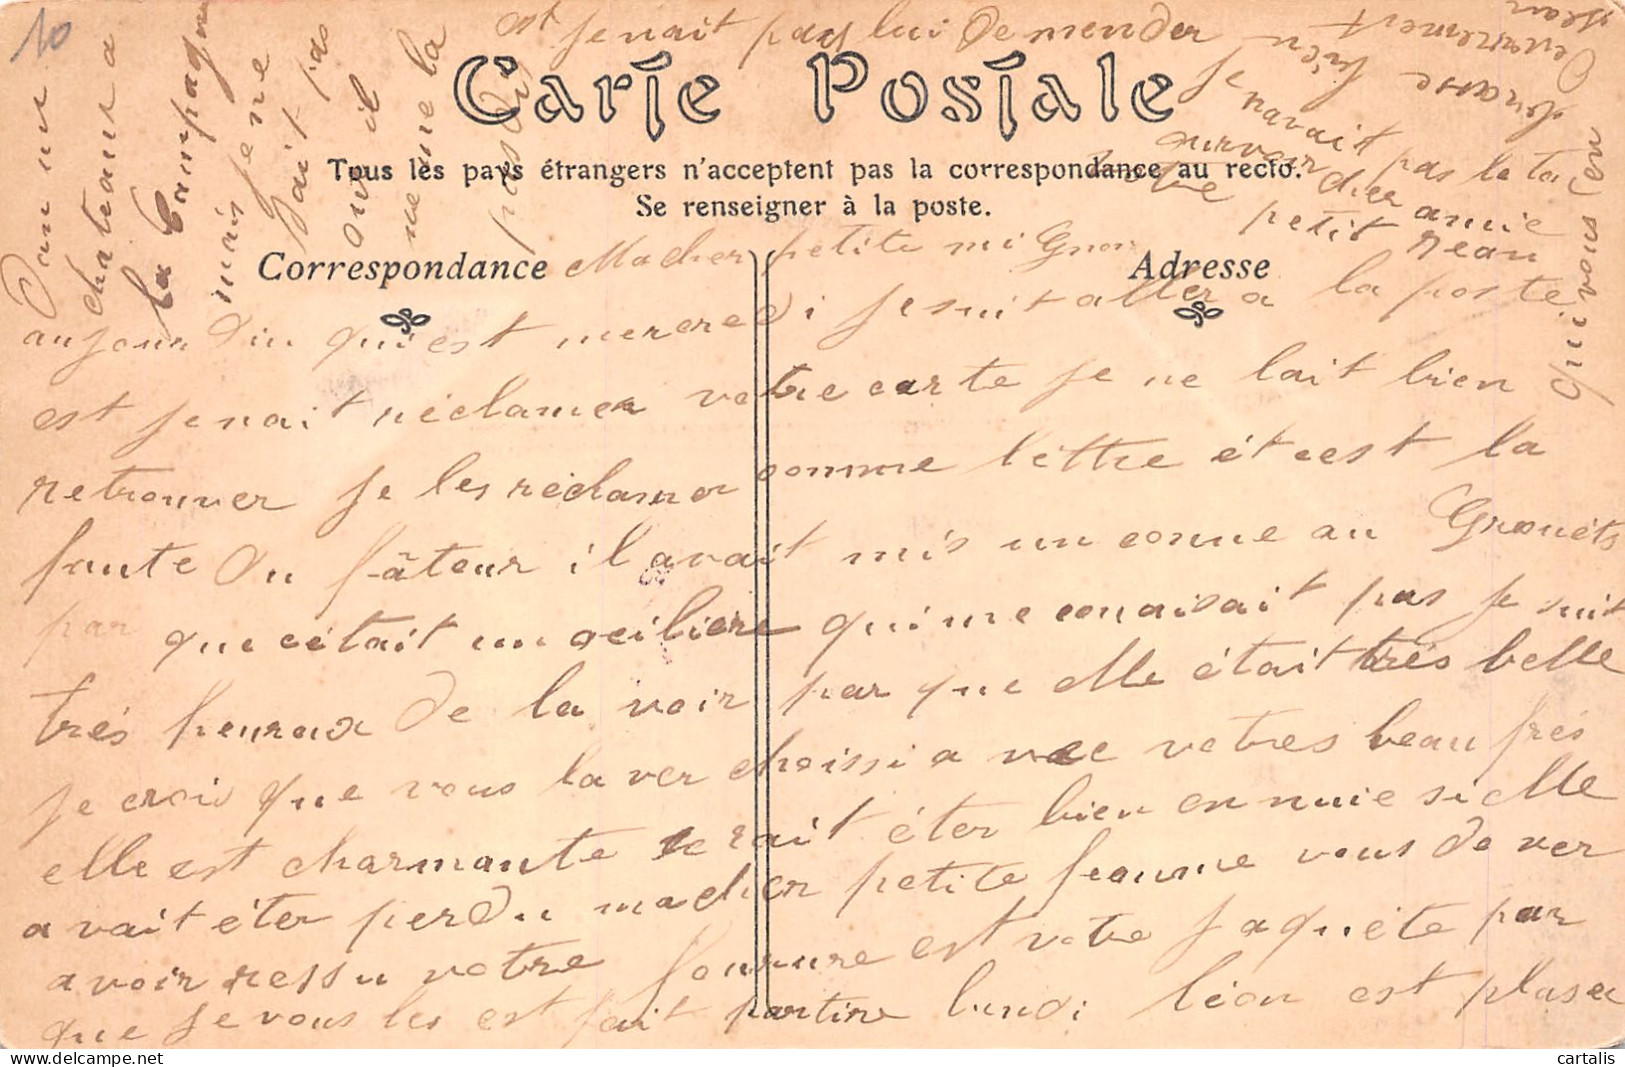 10
Carte Postale
Tous les pays étrangers n'acceptent pas la correspondance au recto.
Se renseigner à la poste.
Correspondance
Adresse
Macher petite mi Gnon
aujour Dui qui est mercredi je suit aller a la poste
est jenait réclamer votre carte je ne lait bien
retrouver je les réclamer comme lettre ét cest la
faute du fâteur il avait mis un conne au Grouéts
par que cétait un ociliere qui me conaisait pas je suit
trés heuraux De la voir par que elle était trés belle
je crois que vous la ver choissi a vec votres beau frés
elle est charmante serait éter bien en nuie si elle
a vait éter perdu macher petite feamme vous de ver
avoir ressu votre fourure est votre jaquéte par
que je vous les est fait partire lundi léon est plaser
Dans une
chateaus a
la Campagne
mais je ne
sait pas
ou il
me ne la
pas dit
est jenait pas lui Demender
qui vous en
brasse bien
Jean
je navait pas le ta
aurvoir cher amie
votre petit Jean
cartalis